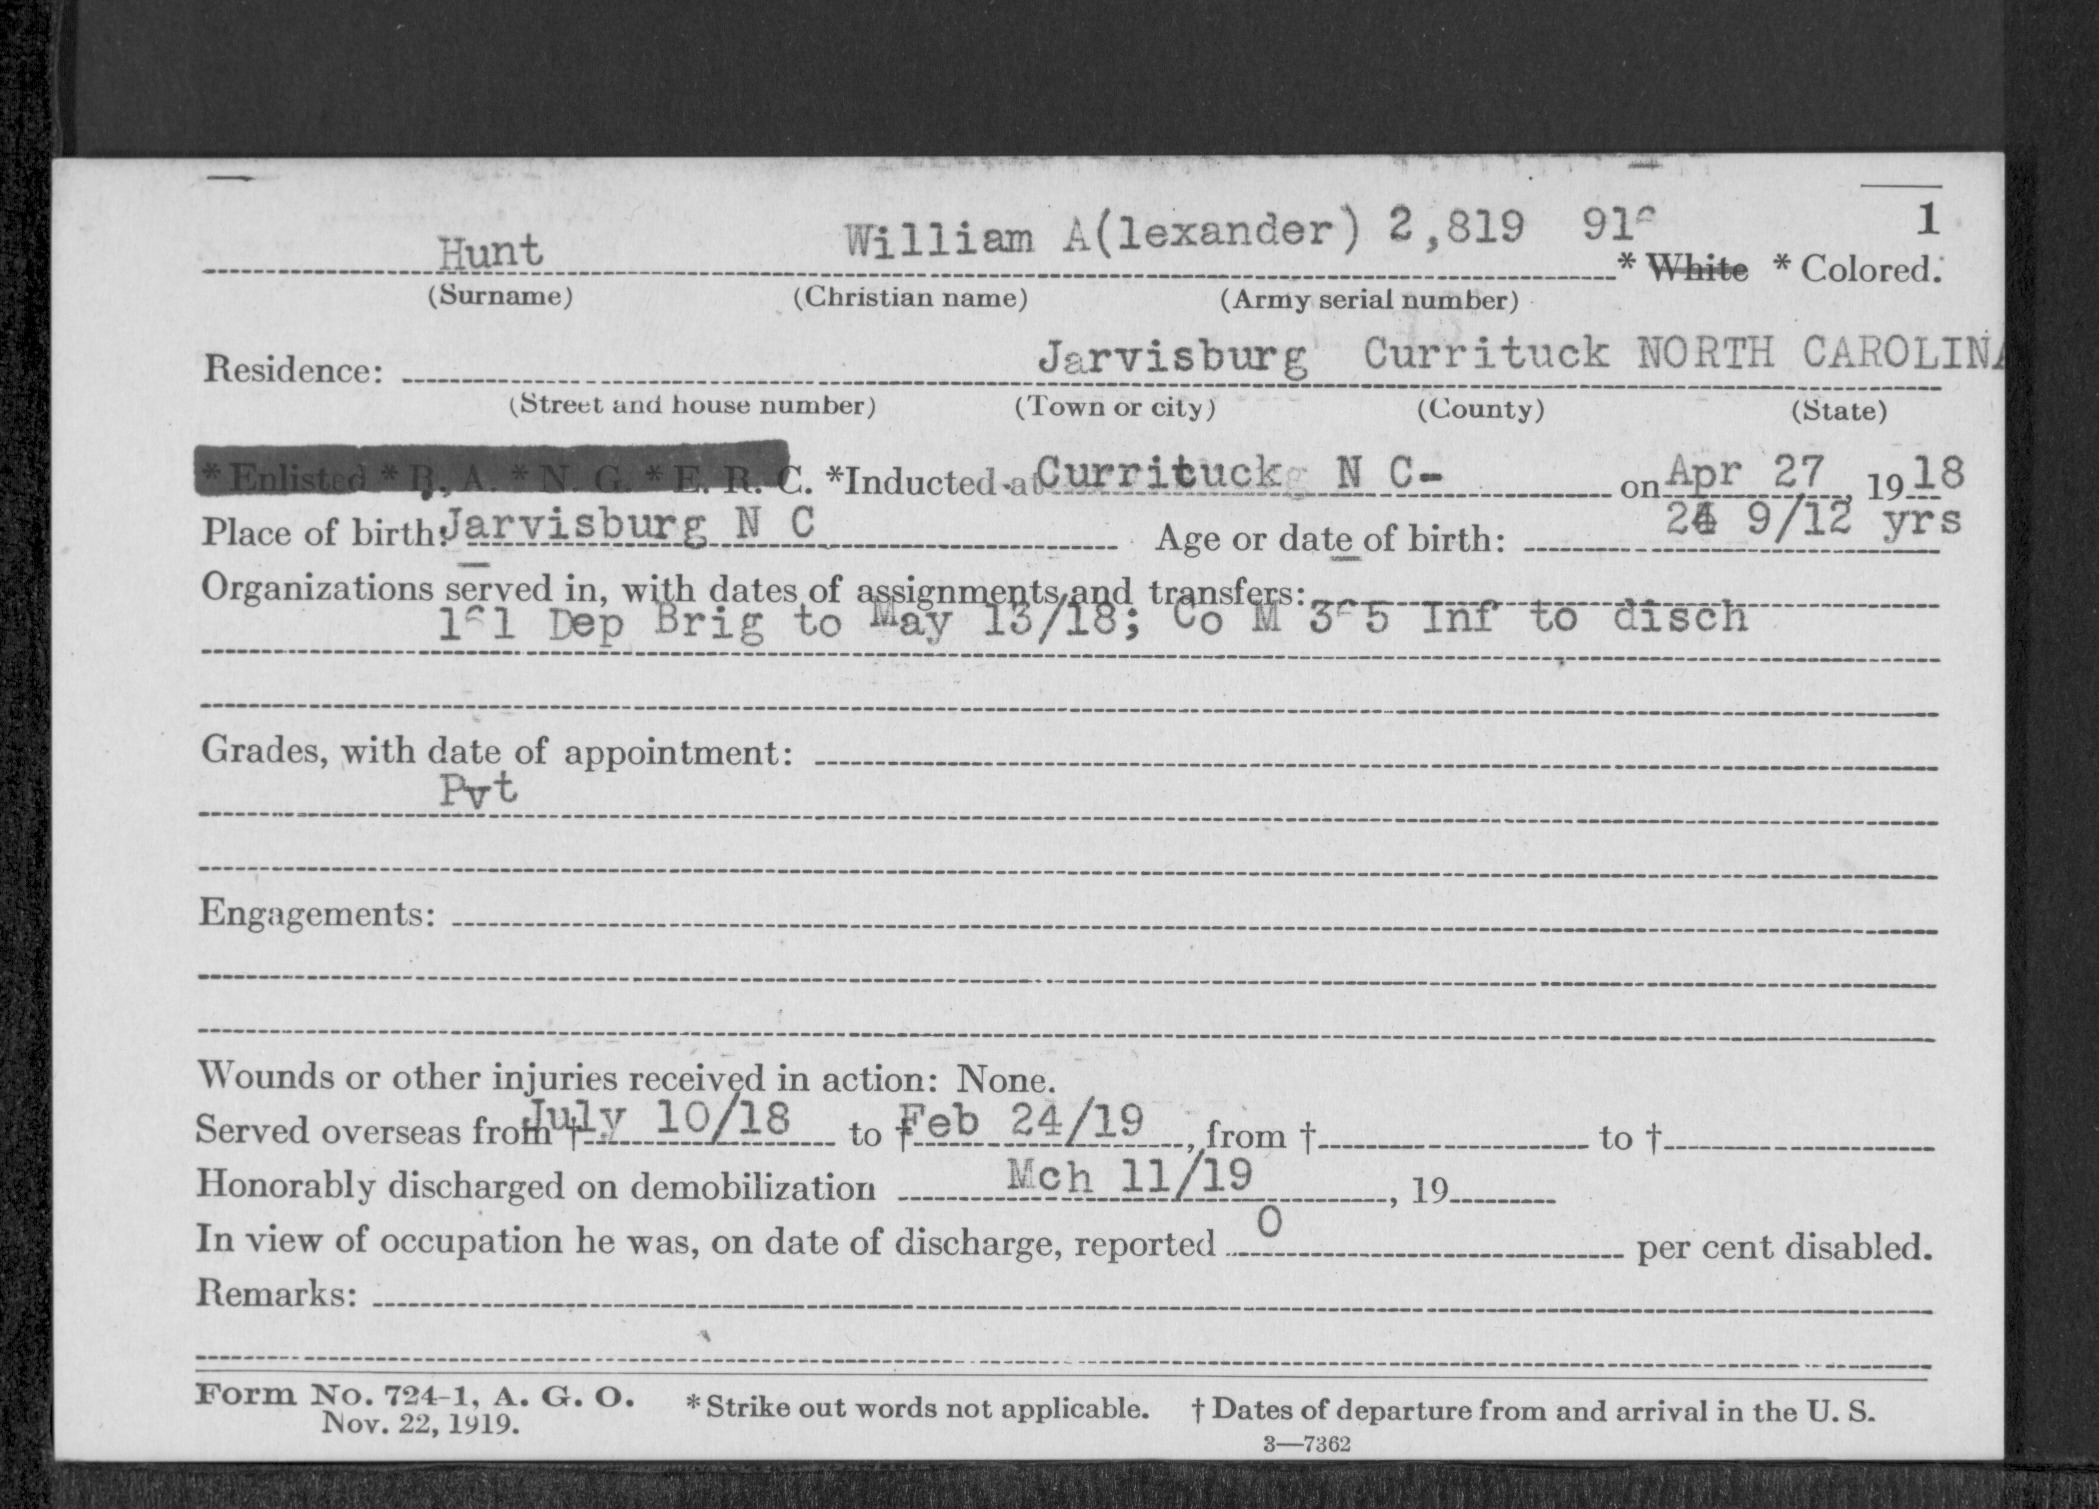 1
Hunt William A(lexander) 2,819
* White * Colored.
(Surname) (Christian name) (Army serial number)
Residence: Jarvisburg Currituck NORTH CAROLINA
(Street and house number) (Town or city) (County) (State)
* Enlisted * R. A. * N. G. * E. R. C. *Inducted at Currituck N C- on Apr 27, 1918
Place of birth: Jarvisburg N C Age or date of birth: 24 9/12 yrs
Organizations served in, with dates of assignments and transfers:
Dep Brig to May 13/18; Co M Inf to disch
Grades, with date of appointment:
Pvt
Engagements:
Wounds or other injuries received in action: None.
Served overseas from † July 10/18 to † Feb 24/19, from † to †
Honorably discharged on demobilization Mch 11/19, 19
In view of occupation he was, on date of discharge, reported 0 per cent disabled.
Remarks:
Form No. 724-1, A. G. O. * Strike out words not applicable. † Dates of departure from and arrival in the U. S.
Nov. 22, 1919.
3—7362